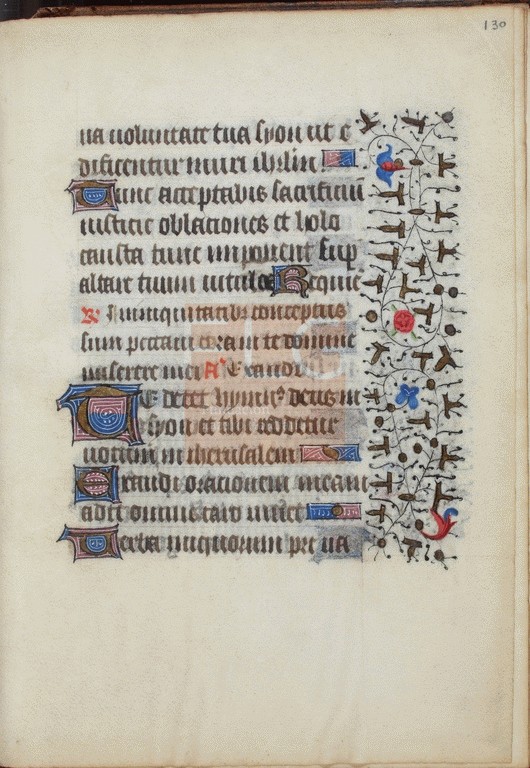 130
na uoluntate tua syon ut e
dificentur muri ihrlm
Tunc acceptabis sacrificiū
iusticie oblationes et holo
causta tunc imponent sup
altare tuum uitulos Requiē
In iniquitatibꝫ conceptus
sum peccaui coram te domine
miserere mei A Exaudi
Te decet hymnꝰ deus in
syon et tibi reddetur
uotum in iherusalem
Exaudi orationem meam
ad te omnis caro ueniet
Uerba iniquorum pre ua